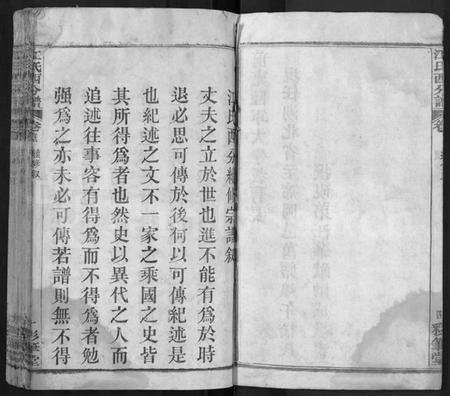 江氏酉分譜
四
彩筆堂
江氏酉分續修宗譜敘
丈夫之立於世也進不能有爲於時
退必思可傳於後何以可傳紀述是
也紀述之文不一家之乘國之史皆
其所得爲者也然史以異代之人而
追述往事容有得爲而不得爲者勉
強爲之亦未必可傳若譜則無不得
江氏酉分譜
彩筆堂